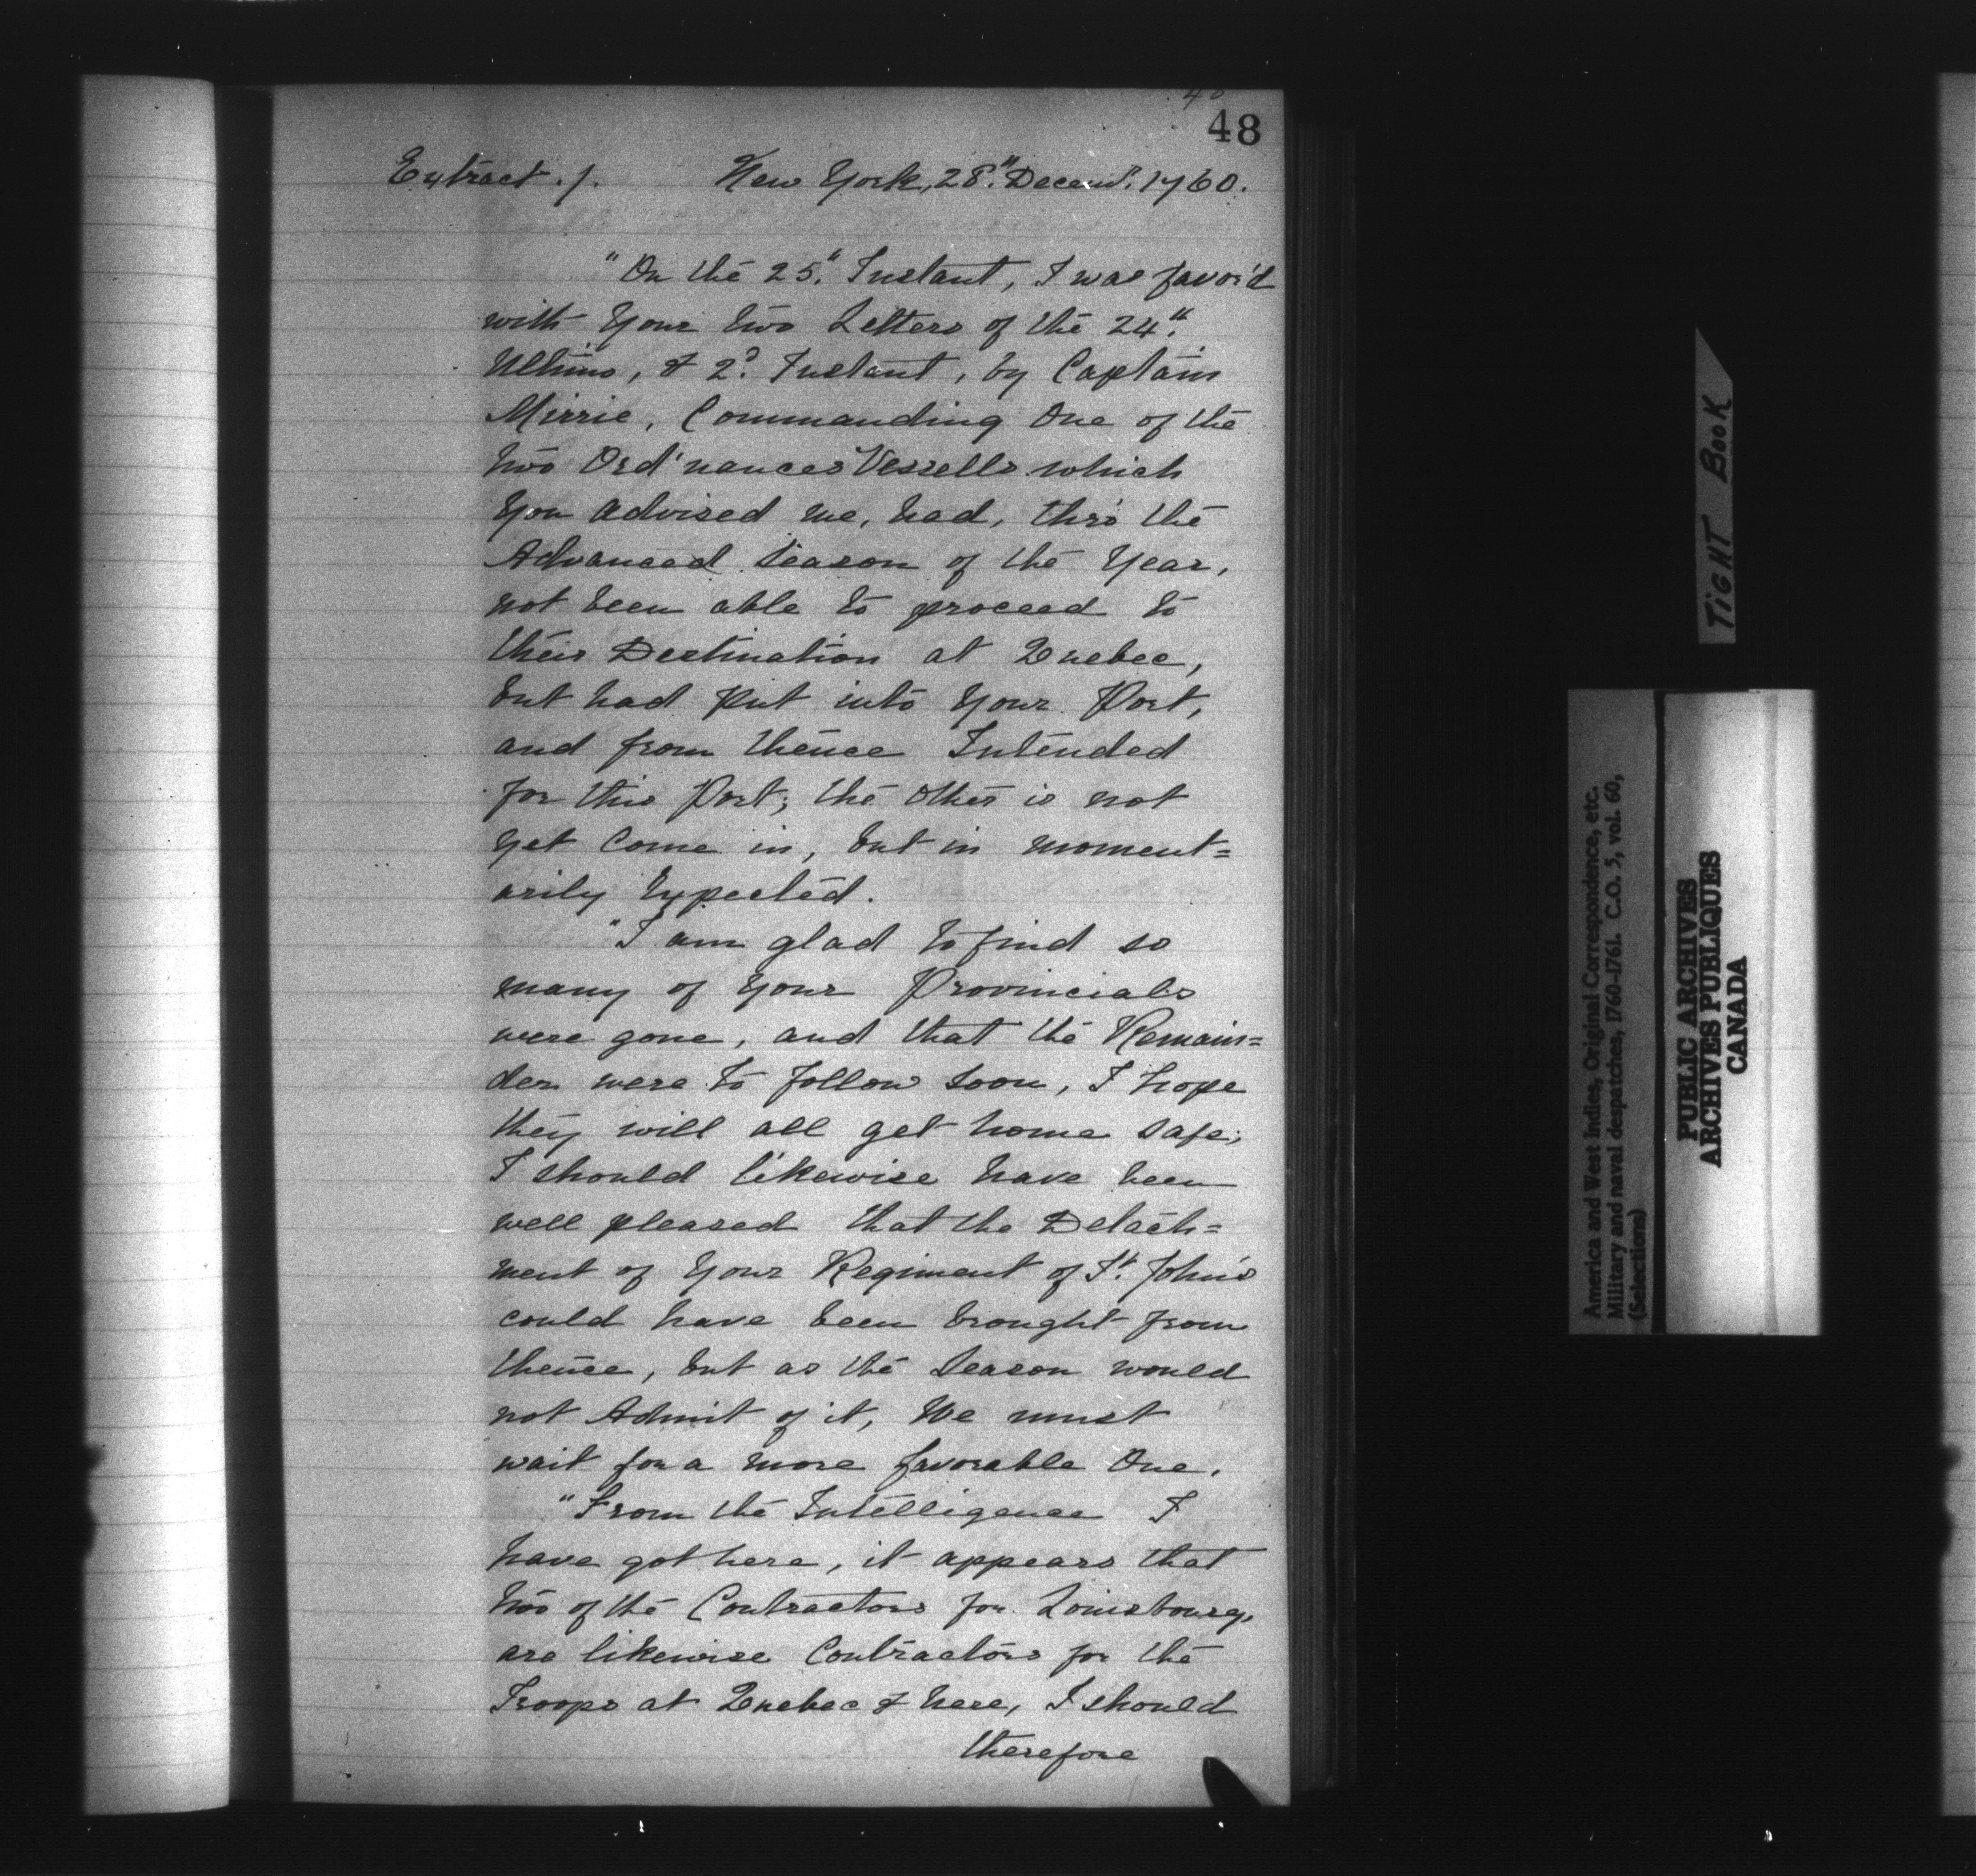 48
Extract. /. New York, 28." Decem.r 1760.
"On the 25." Instant, I was favor'd
with Your two Letters of the 24."
Ultimo, & 2.d Instant, by Captain
Mirrie, Commanding One of the
two Ord'nances Vessells which
You advised me, had, thro' the
Advanced Season of the Year,
not been able to proceed to
their Destination at Quebec,
but had put into Your Port,
and from thence Intended
for this Port; the other is not
yet Come in, but in moment=
arily Expected.
"I am glad to find so
many of Your Provincials
were gone, and that the Remain=
der were to follow soon, I hope
they will all get home safe;
I should likewise have been
well pleased that the Detach=
ment of Your Regiment of St. John's
could have been brought from
thence, but as the Season would
not Admit of it, We must
wait for a more favorable One.
"From the Intelligence I
have got here, it appears that
two of the Contractors for Louisbourg,
are likewise Contractors for the
Troops at Quebec & here, I should
therefore
TIGHT BOOK
America and West Indies, Original Correspondence, etc.
Military and naval despatches, 1760-1761. C.O. 5, vol. 60,
(Selections)
PUBLIC ARCHIVES
ARCHIVES PUBLIQUES
CANADA